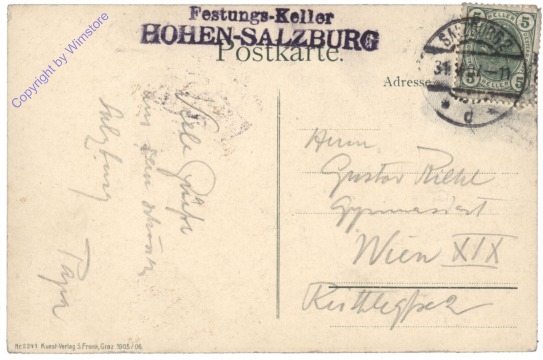 Festungs-Keller
HOHEN-SALZBURG
Postkarte.
Adresse
SALZBURG 2
31
11
d
5
HELLER
5
5
5
Copyright by Wimstore
Viele Grüße
aus dem schönen
Salzburg
Papa
Herrn
Gustav Riehl
Gymnasiast
Wien XIX
Nr. 2241 Kunst-Verlag S. Frank, Graz 1905/06.